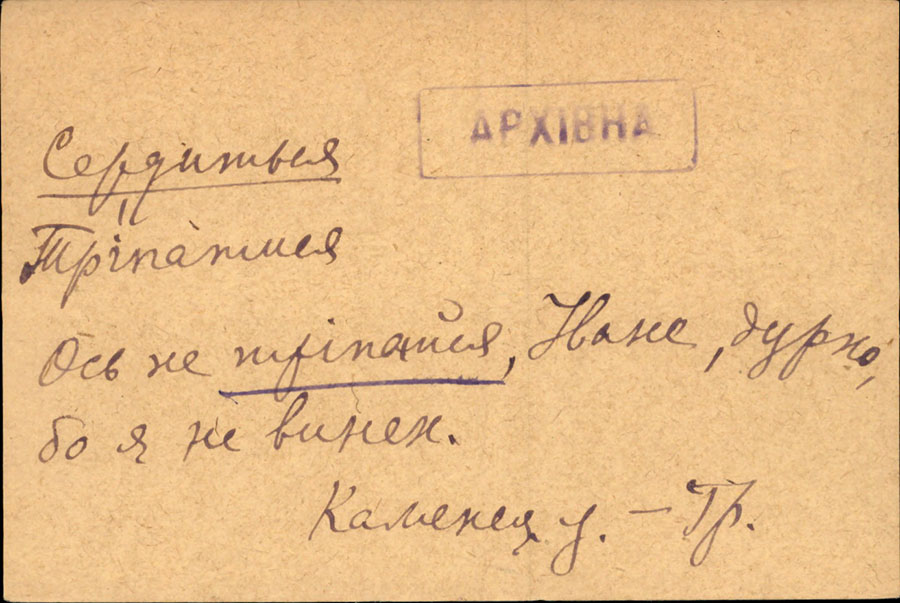 АРХІВНА
Сердиться
Тріпатися
Ось не тріпайся, Йване, дурно,
бо я не винен.
Каменец у. – Гр.